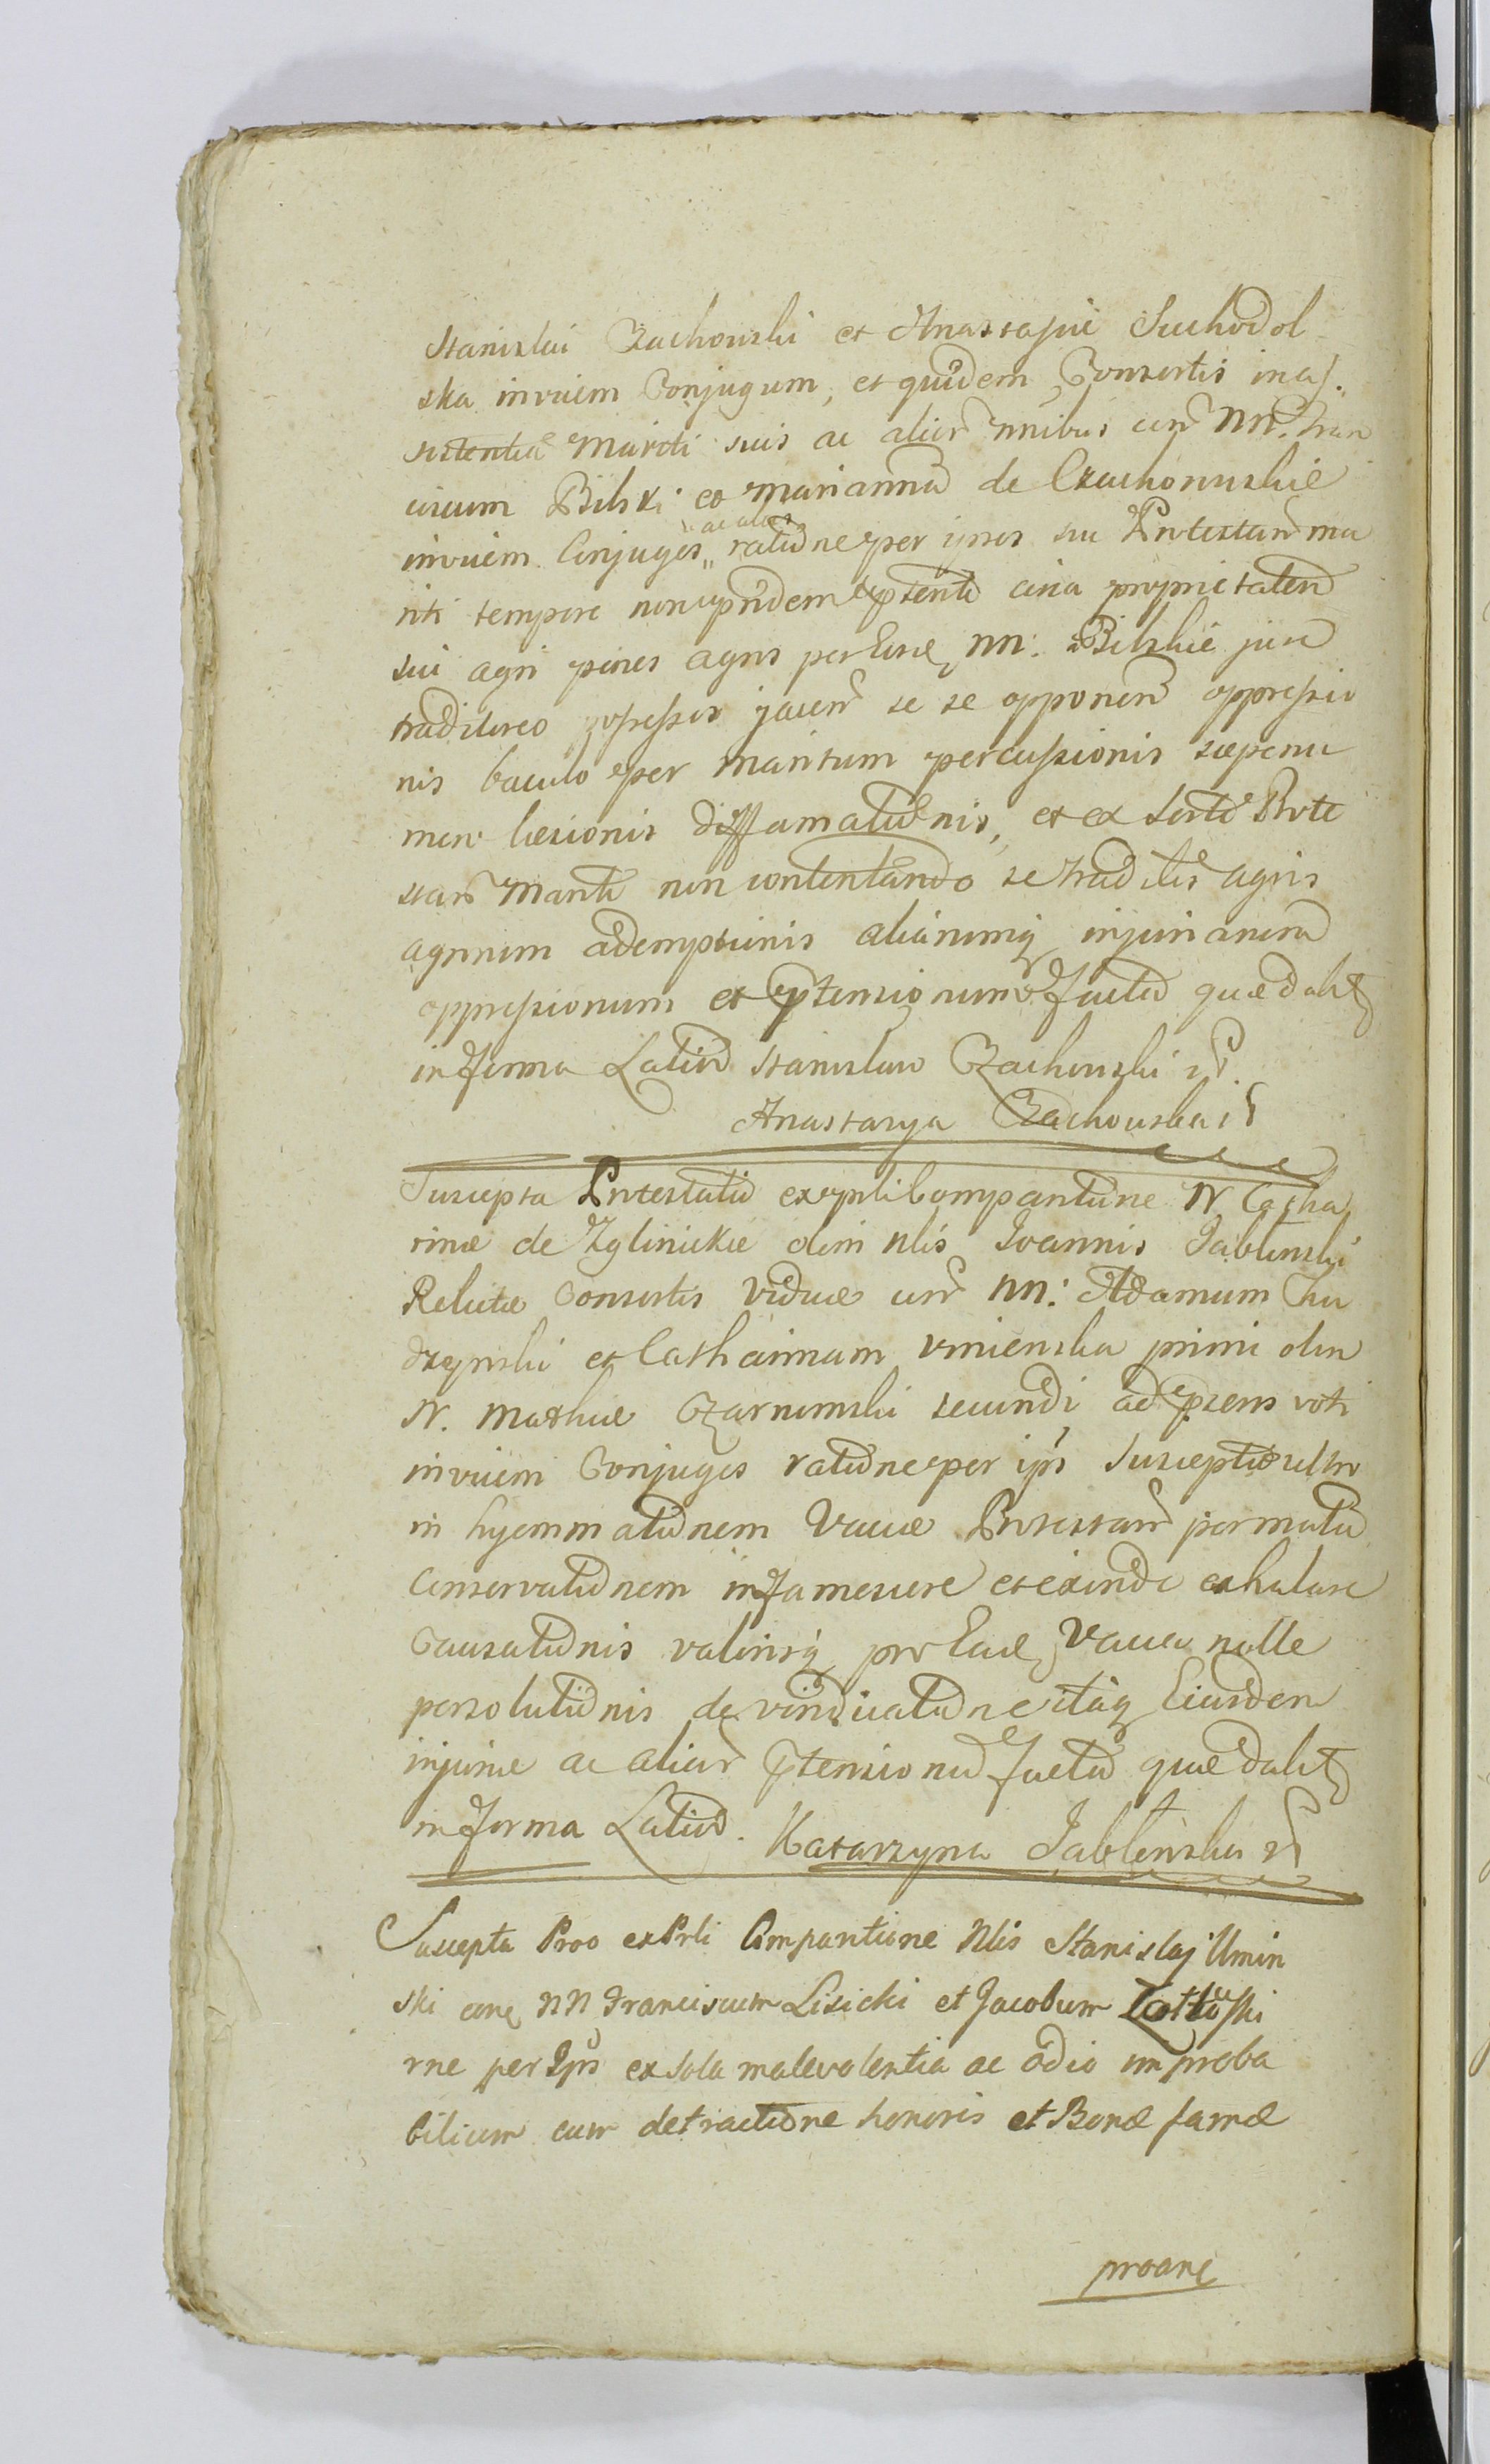 Stanislai Czachowski et Anastasiæ Suchodol
ska invicem Conjugum, et quidem Consortis in as
sistentia Mariti sui ac aliar omnibus con NN. Fran
ciscum Bilski et Mariannam de Czachowskie
invicem Conjuges „ac alios„ ratione per ipsos su Protestan ma
riti tempore non pridem ptenti circa proprietatem
sui agri penes agros per Eosd NN: Bilskie jure
traditoreo possessos jacen se se opponen oppressio
nis baculo per Maritum percussionis sæpenu
mero læsionis diffamationis, et ex sorte Prote
stan Mariti non contentando se traditis agris
agrorum ademptionis aliarumq injuriarum
oppressionum et ptensionum facta quæ dabit
in forma Latiori Stanislaw Czachowski
Anastazya Czachowska
Suscepta Protestatio ex psli Comparitione N Catha
rinæ de Zglinickie olim Nlis Joannis Jablonski
Relictæ Consortis Viduæ con NN: Adamum Chu
dzynski et Catharinam Umienska primi olim
N. Mathiæ Czarnomski secundi ad psens voti
invicem Conjuges ratione per ipsos Susceptæ ultro
in hyemmationem Vaccæ Protestan per malam
Conservationem infamescere et exinde exhalare
Causationis valorisq pro Ead Vacca nolle
persolutionis de vindicatione itaq Eiusdem
injuriæ ac aliar ptensionum facta quæ dabit
in forma Latiori. Katarzyna Jablońska
Suscepta Proo ex Psli Comparitione Nlis Stanislaj Umin
ski con NN Franciscum Lisicki et Jacobum
rne per Ipsos ex sola malevolentia ac odio improba
bilium cum detractione honoris et Bonæ famæ
proane